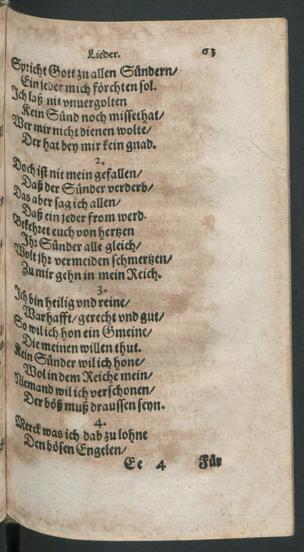 Lieder. 63
Spricht Gott zu allen Sündern/
Ein jeder mich förchten sol.
Ich laß nit vnuergolten
Kein Sünd noch missethat/
Wer mir nicht dienen wolte/
Der hat bey mir kein gnad.
2.
Doch ist nit mein gefallen/
Daß der Sünder verderb/
Das aber sag ich allen/
Daß ein jeder from werd.
Bekehret euch von hertzen
Ihr Sünder alle gleich/
Wolt jhr vermeiden schmertzen/
Zu mir gehn in mein Reich.
3.
Ich bin heilig vnd reine/
Warhafft/ gerecht vnd gut/
So wil ich hon ein Gmeine/
Die meinen willen thut.
Kein Sünder wil ich hone/
Wol in dem Reiche mein/
Niemand wil ich verschonen/
Der böß muß draussen seyn.
4.
Merck was ich dab zu lohne
Den bösen Engelen/
Ee 4 Für